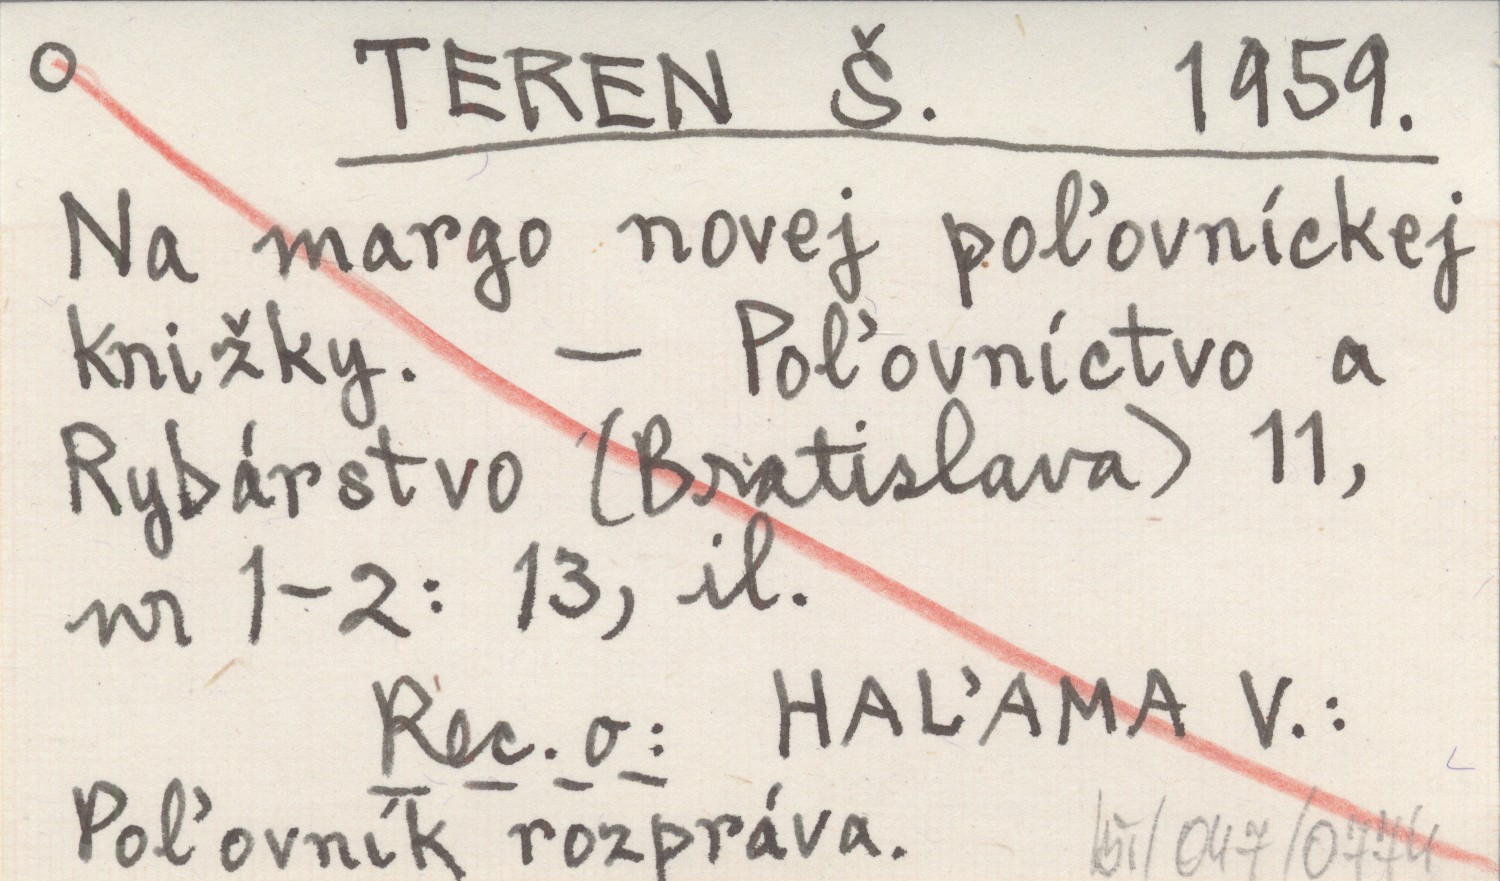 O TEREN Š. 1959.
Na margo novej poľovníckej
knižky. — Poľovníctvo a
Rybárstvo (Bratislava) 11,
nr 1-2: 13, il.
Rec. o: HAĽAMA V.:
Poľovník rozpráva.
/047/0774